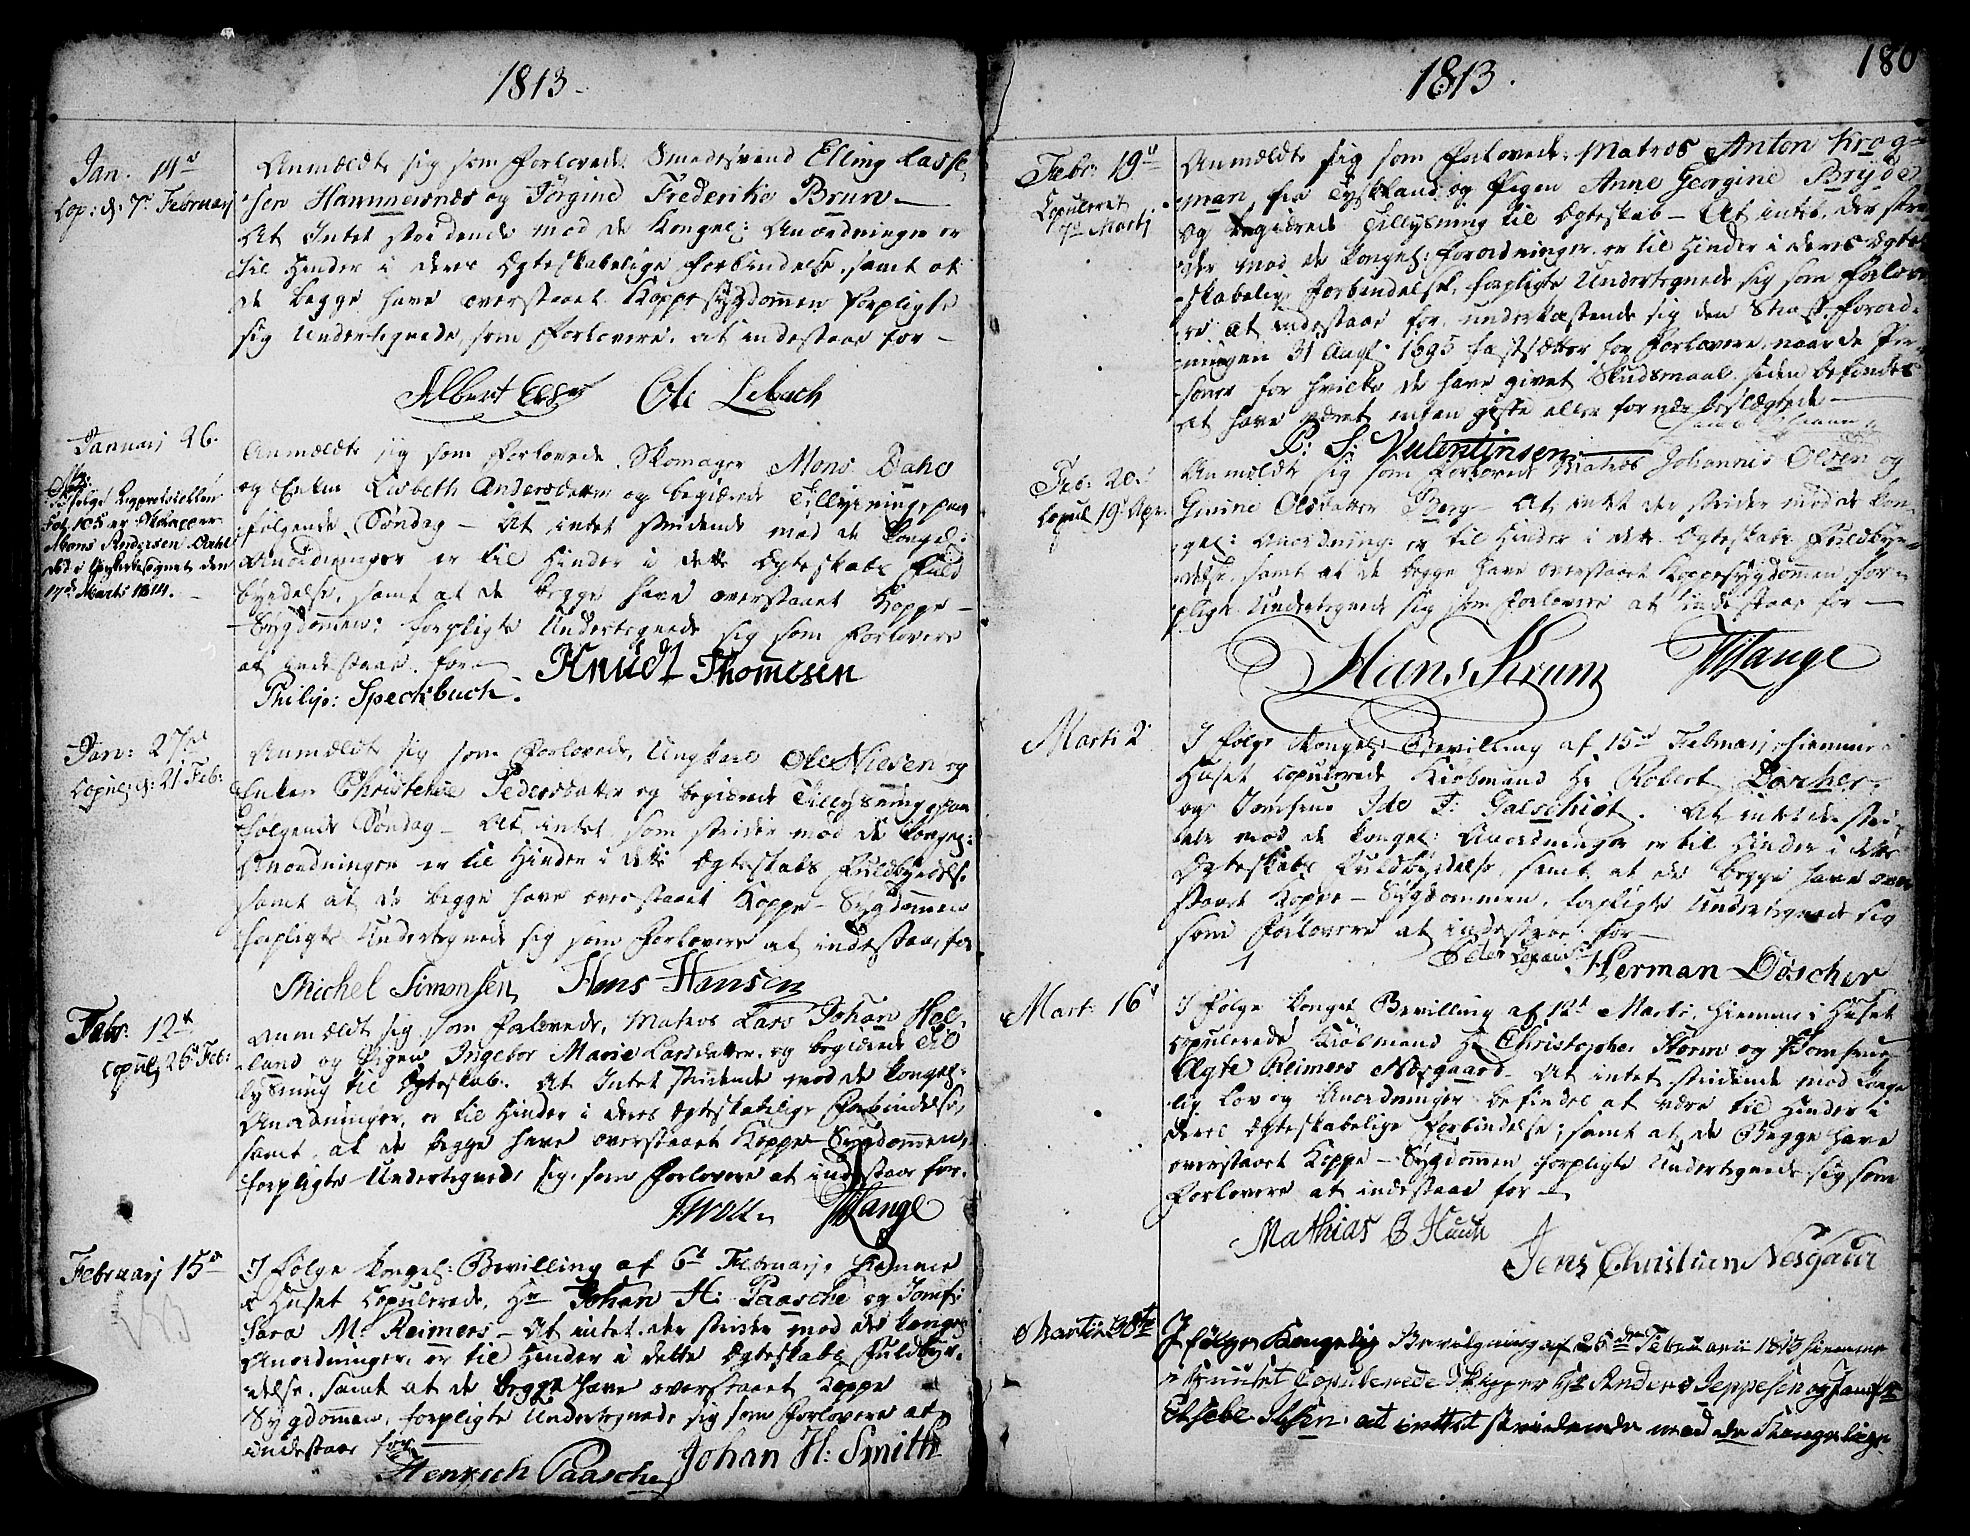 1813.
Jan. 14d
Cop: d. 7d Februarj
Anmældte sig som forlovede Smedesvend Elling Lasse-
sen Hammersnes og Jorgine Frederikke Bruun -
At Intet stridende mod de Kongel: Anordninger er
til Hinder i deres Ægteskabelige Forbindelse, samt at
de begge have overstaaet Koppesygdommen forpligte
sig Undertegnede som Forlovere, at indestaae for -
Albert Ole Lebach
Januarj 26.
Fol 105 er Skomager
Mons Andersen Dahl
17de Marts 1814.
Anmældte sig som forlovede, Skomager Mons Dahl
og Enken Lisbeth Andersdatter og begiærede Tillysning paa
følgende Søndag - At intet stridende mod de Kongel:
Anordninger er til Hinder i dette Ægteskabs Fuld
byrdelse, samt at de begge have overstaaet Koppe-
Sygdommen; forpligte Undertegnede sig som Forlovere
at indestaae for -
Knudt Thomesen
Philip: Speckbuch.
Jan: 27de
Copul: d: 21 Feb:
Anmældte sig som forlovede, Ungkarl Ole Nielsen og
Enken Christense Pedersdatter og begiærede Tillysning paa
følgende Søndag - At intet som strider mod de Kongel:
Anordninger er til Hinder i dette Ægteskabs Fuldbyrdelse
samt at de begge have overstaaet Koppe-Sygdommen
forpligte Undertegnede sig som Forlovere at indestaae for
Michel Simonsen Hans Hansen
Febr: 12te
copul: 26d Feb:
Anmældte sig som forlovede, Matros Lars Johan Hel-
land og Pigen Ingebor Marie Larsdatter og begiærede Til
lysning til Ægteskab. At Intet stridende mod de Kongel:
Anordninger, er til Hinder i deres Ægteskabelige Forbindelse,
samt at de begge have overstaaet Koppe-Sygdommen,
forpligte Undertegnede sig, som Forlovere at indestaae for.
Lange
Februarj 15d
I følge Kongel: Bevilling af 6d Februarj, hiemme
i Huset Copulerede, Hr Johan H: Paasche og Jomf:
Sara M. Reimers - At intet der strider mod de Kongel
Anordninger, er til Hinder i dette Ægteskabs Fuldbyr-
delse, samt at de begge have overstaaet Koppe
Sygdommen, forpligte Undertegnede sig som Forlovere at
indestaae for -
Henrich Paasche Johan H: Smith
1813.
180
Febr: 19d
Copuleret
7d Martj
Anmældte sig som forlovede: Matros Anton Krog-
man, fra Tydskland, og Pigen Anne Georgine Bryde
og begiærede Tillysning til Ægteskab - At intet, der stri-
der mod de Kongel: forordninger, er til Hinder i deres Ægte-
skabelige Forbindelse, forpligte Undertegnede sig som Forlove-
re at indestaae for, underkastende sig den Straf, Forord-
ningen 31 Augl: 1695 fastsætter for Forlovere, naar de Per-
soner for hvilke de have givet Skudsmaal, siden befindes
at have været enten gifte eller for nær beslægtede -
P: S: Valentinsen
Feb: 20.
copul 19d Apr.
Anmældte sig som forlovede Matros Johannes Olsen og
Gurine Olsdatter Berg - At intet der strider mod de Kon-
gel: Anordning: er til Hinder i dette Ægteskabs Fuldbyr-
delse, samt at de begge have overstaaet Koppesygdommen for-
pligte Undertegnede sig som Forlovere at indestaae for -
Hans Krum Lange
Marti 2
I følge Kongel: Bevilling af 15d Februarj, hiemme i
Huset copulerede Kiøbmand Hr Robert Döscher,
og Jomfrue Ide F: Galschiøt. At intet der stri-
der mod de Kongel: Anordninger er til Hinder i dette
Ægteskabs Fuldbyrdelse, samt at de begge have over
staaet Koppe-Sygdommen, forpligte Undertegnede sig
som Forlovere at indestaae for -
Herman Döscher
Mart: 16d
I følge Kongel Bevilling af 12d Marti, hiemme i Huset
copulerede Kiøbmand Hr Christopher Storm og Jomfrue
Agte Reimers Nørgaard - At intet stridende mod Konge
lig Lov og Anordninger befindes at være til Hinder i
deres Ægteskabelige Forbindelse; samt at de Begge have
overstaaet Koppe-Sygdommen forpligte Undertegnede sig som
Forlovere at indestaae for -
Mathias B Hauch
Jens Christian Nesgaard
I følge Kongelig Bevilgning af 25de Februarii 1813 hiemme
i Huuset Copulerede Skipper Hr Anders Jeppesen og Jomf
Elsebe Ibsen. at intet stridende mod de Kongelige